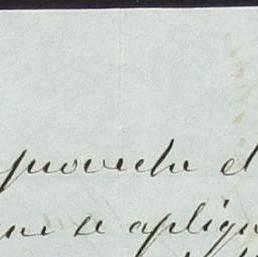 provecho el
que se aplique